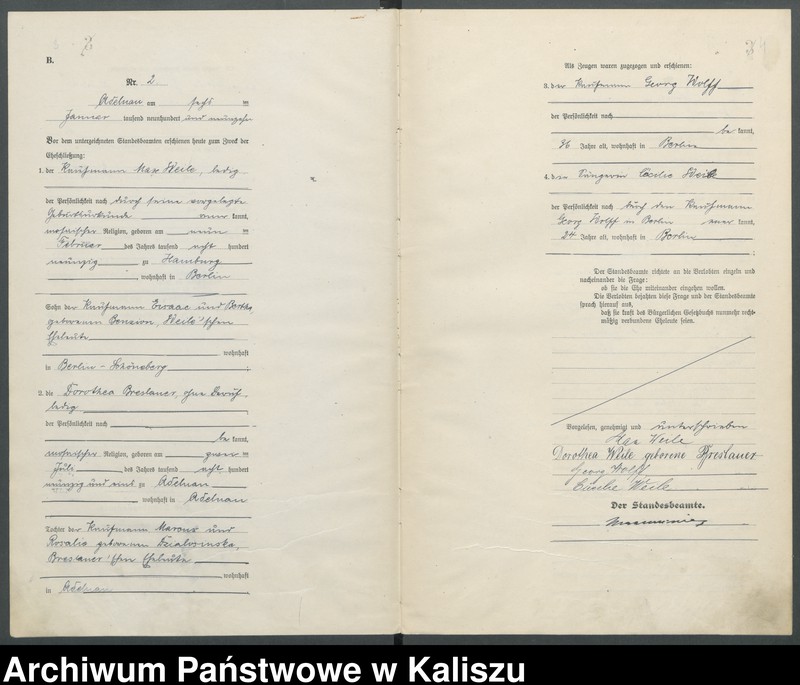 2
B.
Nr. 2
Adelnau am sechs ten
Januar tausend neunhundert und neunzehn
Vor dem unterzeichneten Standesbeamten erschienen heute zum Zweck der
Eheschließung:
1. der Kaufmann Max Weile, ledig
der Persönlichkeit nach durch seine vorgelegte
Geburtsurkunde anerkannt,
mosaischer Religion, geboren am neun ten
Februar des Jahres tausend acht hundert
neunzig zu Hamburg
, wohnhaft in Berlin
Sohn der Kaufmann und Bertha,
geborenen Weile'schen
Eheleute
wohnhaft
in Berlin-Schöneberg
2. die Dorothea Breslauer, ohne Beruf,
ledig
der Persönlichkeit nach
be kannt,
mosaischer Religion, geboren am zwei ten
Juli des Jahres tausend acht hundert
neunzig und eins zu Adelnau
wohnhaft in Adelnau
Tochter der Kaufmann Marcus und
Rosalie geborenen
Breslauer'schen Eheleute
wohnhaft
in Adelnau
Als Zeugen waren zugezogen und erschienen:
3. der Kaufmann Georg Wolff
der Persönlichkeit nach
be kannt,
36 Jahre alt, wohnhaft in Berlin
4. die Sängerin Cäcilie Weile
der Persönlichkeit nach durch den Kaufmann
Georg Wolff in Berlin aner kannt,
24 Jahre alt, wohnhaft in Berlin
Der Standesbeamte richtete an die Verlobten einzeln und
nacheinander die Frage:
ob sie die Ehe miteinander eingehen wollen.
Die Verlobten bejahten diese Frage und der Standesbeamte
sprach hierauf aus,
daß sie kraft des Bürgerlichen Gesetzbuchs nunmehr recht-
mäßig verbundene Eheleute seien.
Vorgelesen, genehmigt und unterschrieben
Max Weile
Dorothea Weile geborene Breslauer
Georg Wolff
Cäcilie Weile
Der Standesbeamte.
Archiwum Państwowe w Kaliszu